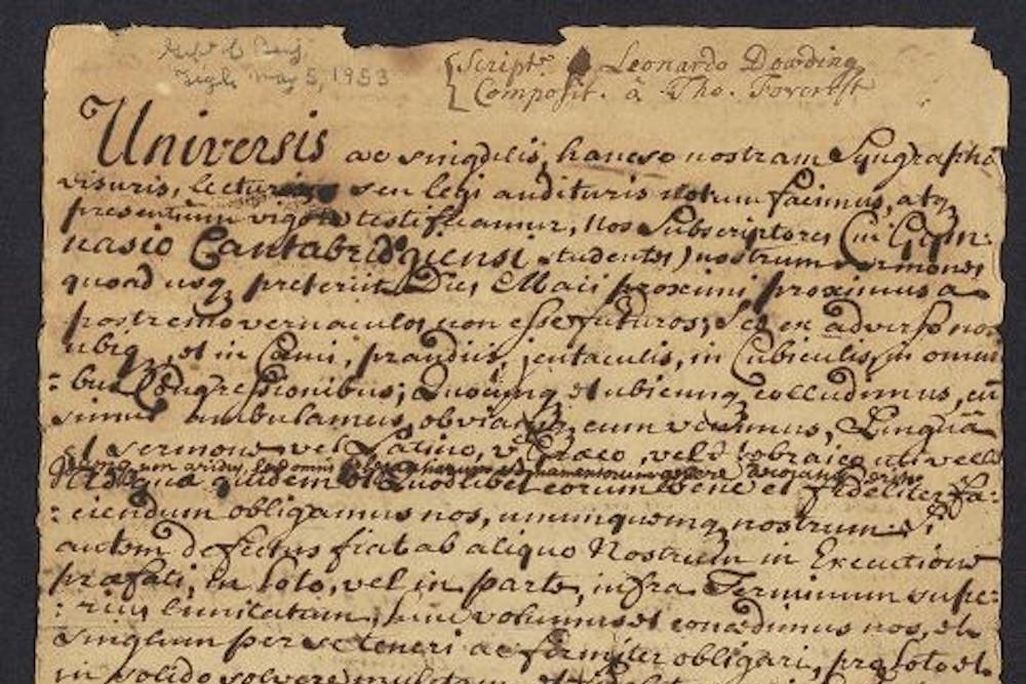 May 5, 1953
Script. à Leonardo Dowding
Composit. à Tho. Forcrest
Universis ac singulis, hancce nostram Syngrapha
visuris, lecturis, seu legi audituris notum facimus, atq
presentium vigore testificamur, Nos Subscriptores (in Gym-
nasio Cantabridgiensi studentes) nostrum sermones
quoad usq preteriit Dies Maii proximi proximus a
postremo vernaculos non esse futuros; Sed ex adverso nos
ubiq, et in Cami, prandiis, jentaculis, in Cubiculis, in omni
: bus Congressionibus; Quocunq et ubicunq colludimus, cū
simul ambulamus, obviam cum venimus, Linguā
et sermone vel Latino, vel Graeco, vel Hebraico uti velle
quidem et Quodlibet eorum bene et fideliter fa:
: ciendum obligamus nos, unumquemq nostrum. Si
autem defectus fiat ab aliquo Nostrum in Executione
præfati, in toto, vel in parte, infra Terminum supe:
: rius limitatum, volumus et concedimus nos, et
singlum per se teneri ac firmiter obligari, pro toto et
in solido solvere mulctam